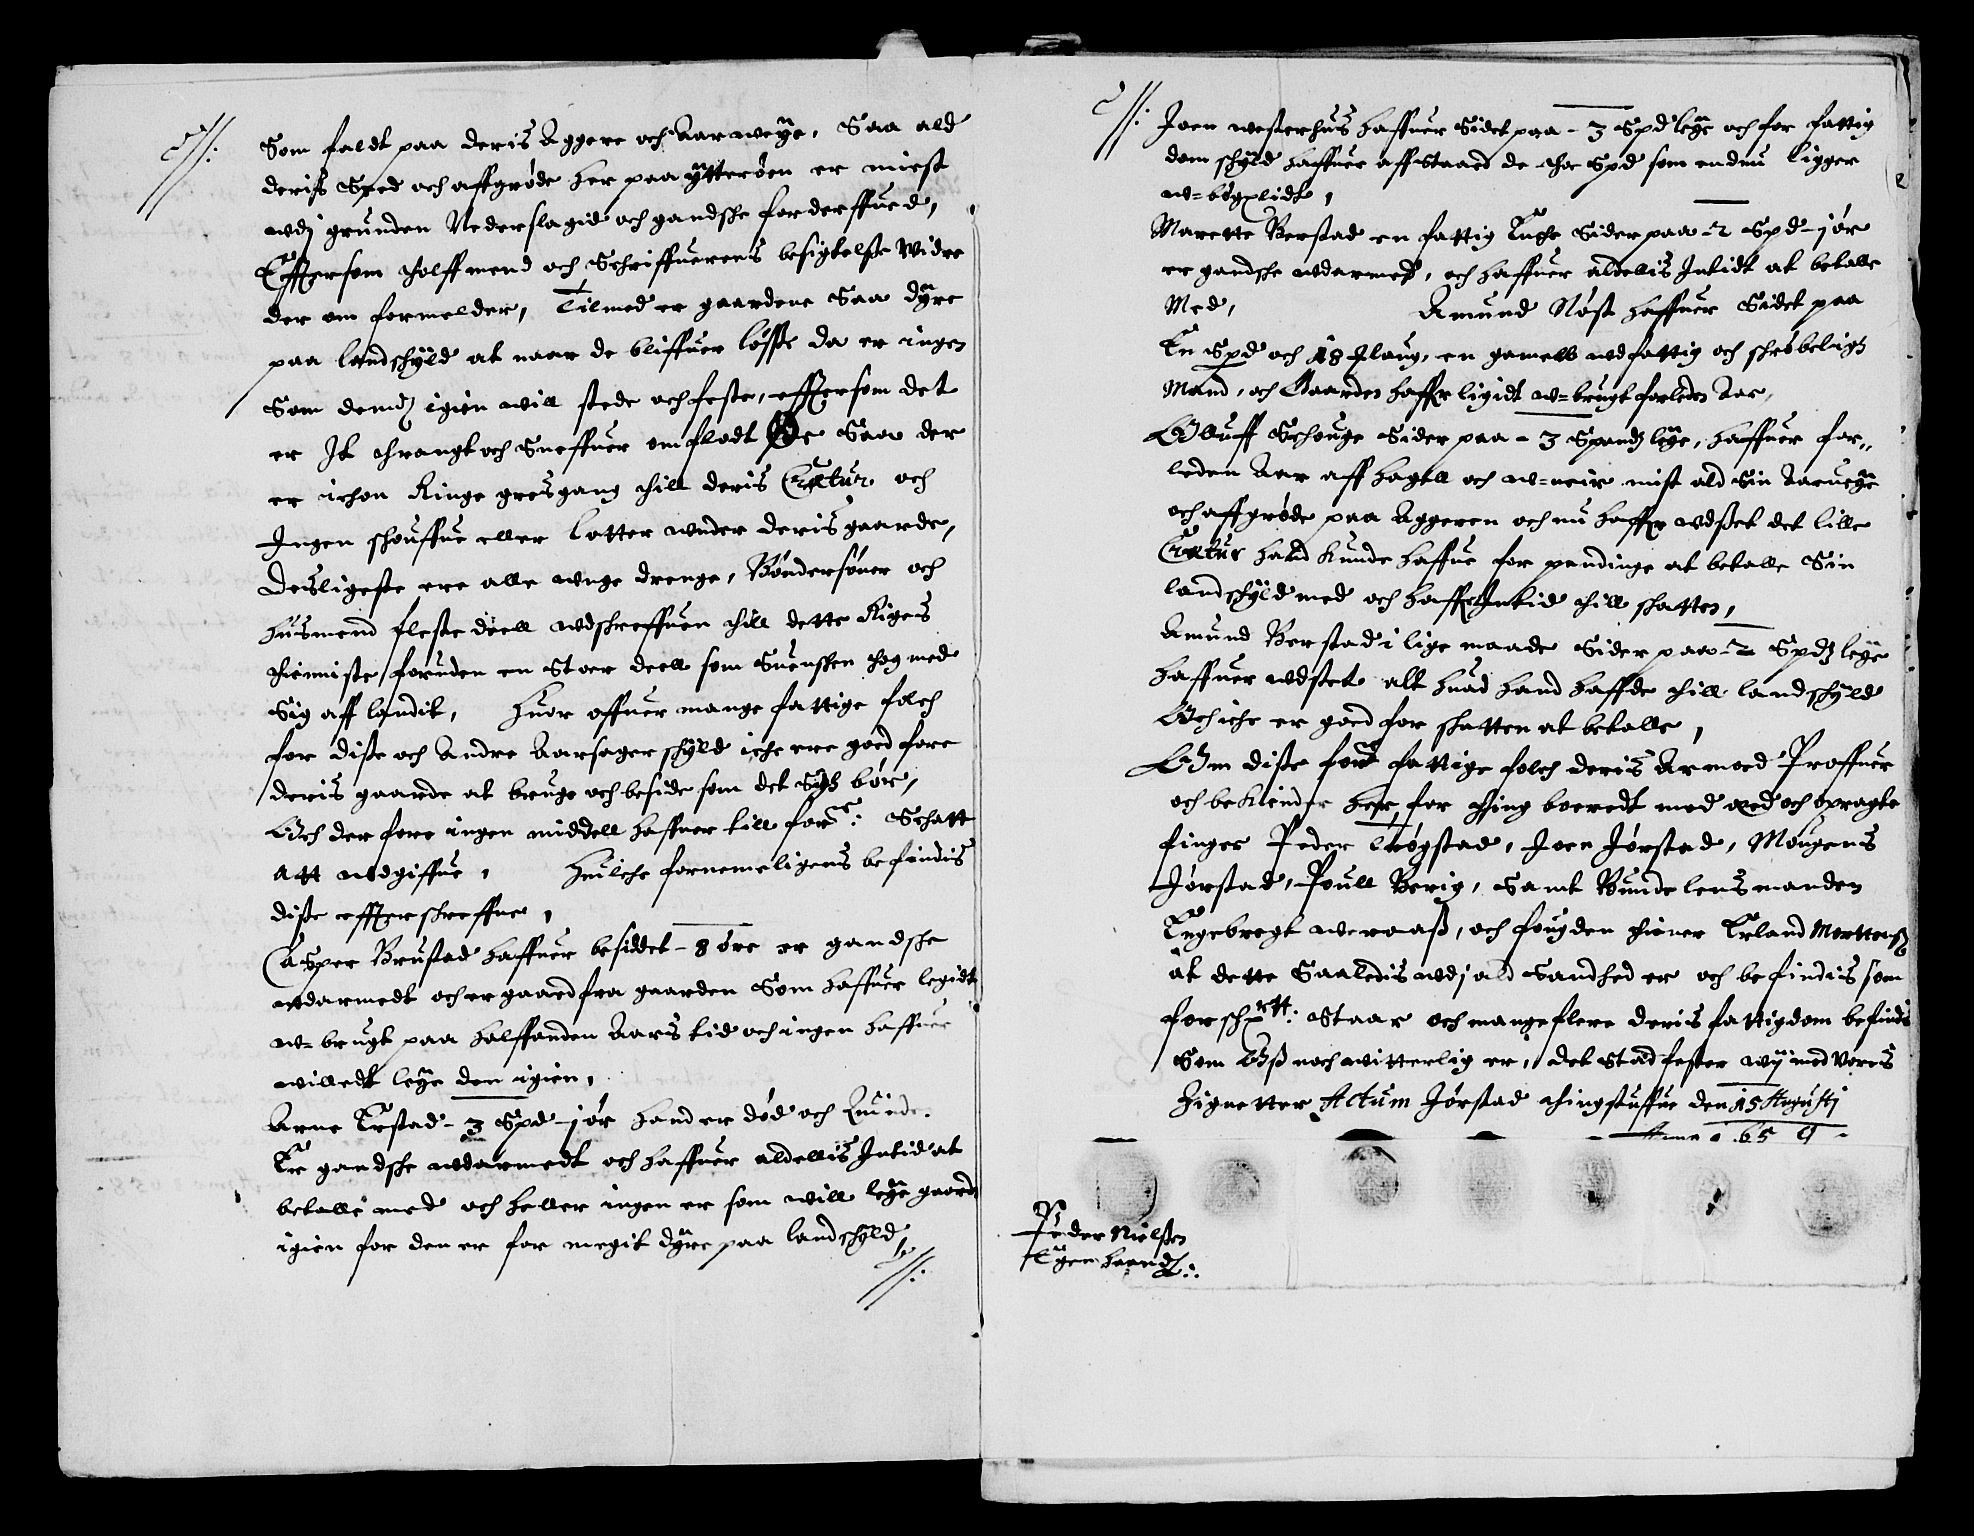 Som faldt paa deris Aggere och Aarweye, Saa ald
deris Sæd och affgrøde her paa ÿtterøen er miest
wdj grunden Nederslagid och gandske forderffued,
Efftersom tholffmend och Schriffuerens besigtelße Widre
der om formelder, Tilmed er gaardene Saa dÿre
paa landschÿld at naar de bliffuer løße da er ingen
Som dennẽ igien will stede och feste, efftersom det
er It thrangt och Sneffuer omflødt Øe Saa der
er ichon Ringe gresgang thill deris Crætur och
Ingen schouffue eller Lotter wnder deris gaarde,
Desligeste ere alle wnge drenge, Bøndersøner och
Husmend fleste deell wdschreffuen thill dette Rigens
thienniste foruden en Stoer deell som Suensken tog med
Sig aff landit, Huor offuer mange fattige folch
for diße och Andre Aarsager schÿld iche ere goed fore
deris gaarde at bruge och beside som det Sigh bør,
Och der fore ingen middell haffuer till forne: Schatt
Att wdgiffue, Huilche fornemeligens befindis
diße efftterschreffne,
Casper Brustad haffuer besiddet - 8 øre er gandske
wdarmedt och er gaaed fra gaarden Som haffuer legidt
w= brugt paa halffanden Aars tid och ingen haffuer
willedt leÿe den igien,
Arne Erstad - 3 Spd - jør hand er død och Quinde
Er gandske wdarmedt och haffuer aldellis Intid at
betalle med och heller ingen er som will leÿe gaarden
igien for den er for megit dÿre paa landschÿld,
Joen westerhus haffuer Sidet paa - 3 Spd leÿe och for fattig
dom schÿld haffuer aff Staaed de tho Spd som endnu ligger
w= bøgxlidt,
Marette Berstad en fattig Enche Sider paa - 2 Spd - jør
er gandske wdarmed, och haffuer aldellis Intidt at betalle
Med, Amund Nøst haffuer Sidet paa
En Spd och 18 Mlaug, en gamell wdfattig och schrøbeligh
Mand, och Gaarden haffr ligidt w= brugt forleden Aar,
Oluff Schouge Sider paa - 3 Spandz leÿe, haffuer for„
leden Aar aff hagell och w= neir mist ald Sin Aarueÿe
och affgrøde paa Aggeren och nu haffr wdßet det lille
Crætur hand Kunde haffue for pendinge at betalle Sin
landschÿld med och haffr Intid thill schatten,
Amund Berstad i lige maade Sider paa - 2 Spdz leÿe
haffuer wdßet alt huad hand haffde thill landschÿld
Och iche er goed for schatten at betalle,
Om diße forne fattige folch deris Armoed Proffuer
och bekiender her for thing boeredt med æed och opragte
finger Peder Løgstad, Joen Jørstad, Mougens
Jørstad, Poull Berig, Samt Bunde lensmanden
Engebregt Weraaß, och fougden thiener Erland Mortenß
at dette Saaledis wdj ald Sandhed er och befindis som
forschrtt: Staar och mange flere deris fattigdom befindis
Som Oß noch witterlig er, det Stadfester wÿ med Voris
Zignetter Actum Jørstad thingstuffue den 15 Augustj
Anno 1659
Peder Nielßen
Egen haandt: